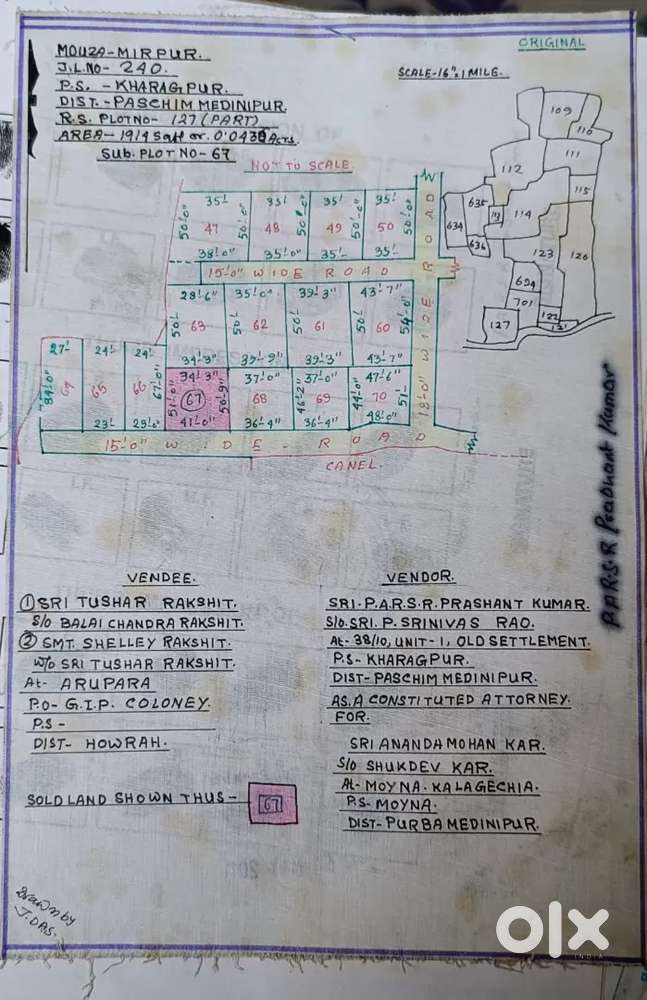 ORIGINAL
MOUZA-MIRPUR.
J.L.NO- 240.
P.S. - KHARAGPUR.
DIST.- PASCHIM MEDINIPUR
R.S. PLOT NO- 127 (PART)
AREA- 1914 Sqft or. 0.0439 Acts.
SUB. PLOT NO- 67
SCALE-16":1 MILE.
NOT TO SCALE.
109
110
111
112
115
635
113
114
634
636
123
126
694
701
127
122
121
35'- 35'- 35' 35'
50'-0" 47 50'-0" 48 50'-0" 49 50'-0" 50 50'-0"
38'0" 35'0" 35'- 35'-
15'-0" WIDE ROAD
18'-0" WIDE ROAD
28'-6" 35'0" 39'-3" 43'-7"
50'- 63 50'- 62 50'- 61 50'- 60
34'-3" 39'-3" 43'-7"
27'- 24'- 24'- 34'-3" 37'-0" 37'-0" 47'-6"
84'-0" 65 66 67'-0" 51'-0" 67 50'-9" 68 46'-2" 69 44'-0" 70 51'-
23'- 41'-0" 36'-4" 36'-4" 48'-0"
15'-0" WIDE- ROAD
CANEL.
P.A.R.S.R Prashant Kumar
VENDEE.
① SRI TUSHAR RAKSHIT.
S/O BALAI CHANDRA RAKSHIT.
② SMT. SHELLEY RAKSHIT.
W/O SRI TUSHAR RAKSHIT.
At- ARUPARA
P.O- G.I.P. COLONEY.
P.S -
DIST- HOWRAH.
SOLD LAND SHOWN THUS - 67
VENDOR.
SRI.P.A.R.S.R.PRASHANT KUMAR.
S/O.SRI. P. SRINIVAS RAO.
At- 38/10, UNIT- 1, OLD SETTLEMENT.
P.S- KHARAGPUR.
DIST- PASCHIM MEDINIPUR.
AS.A CONSTITUTED ATTORNEY.
FOR.
SRI ANANDA MOHAN KAR.
S/O SHUKDEV KAR.
At- MOYNA. KALAGECHIA.
P.S- MOYNA.
DIST- PURBA MEDINIPUR.
Drawn by
J. DAS.
olx
INDIA